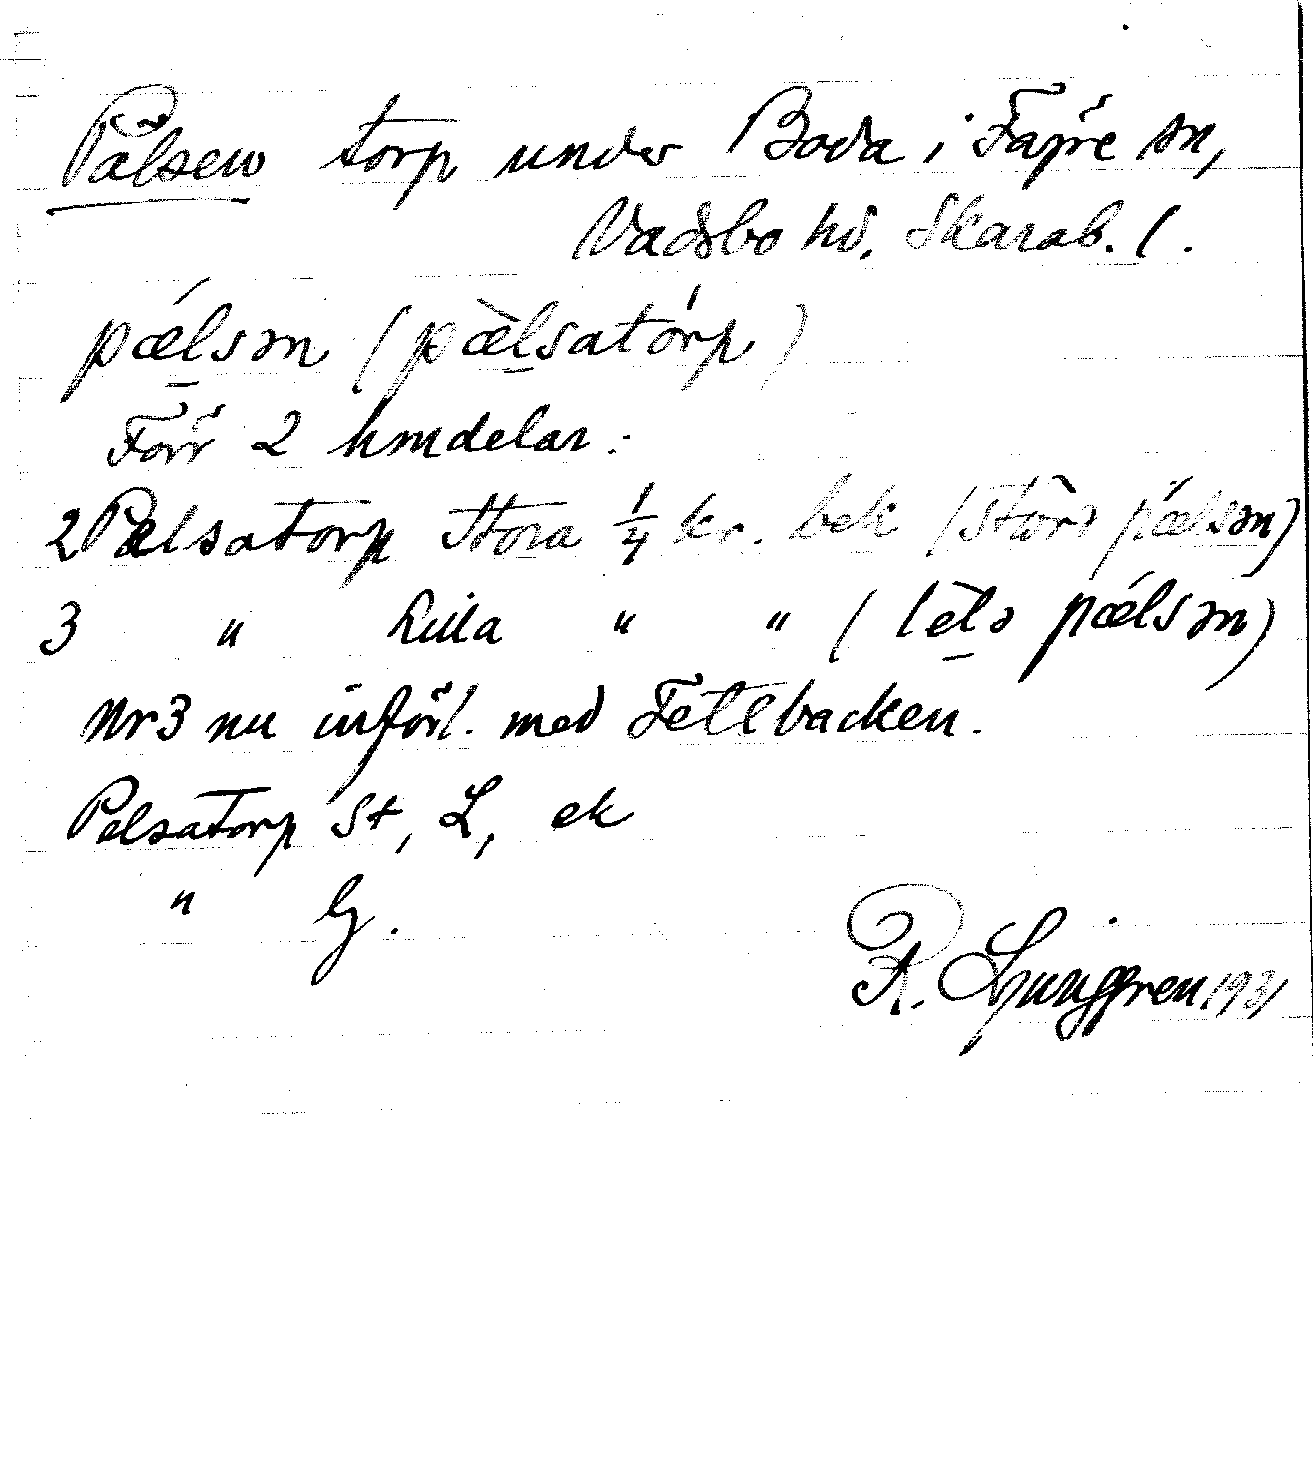 Pälsen torp under Boda i Fägre sn,
Vadsbo hd. Skarab. l.
pǽlsən (pæ̀lsatórp)
Förr 2 hmdelar:
2 Pælsatorp Stora 1/4 kr. bek (stòrə pǽlsən)
3 " Lilla " " (lèlə pǽlsən)
Nr 3 nu införl. med Fetebacken.
Pelsatorp St, L, ek
" G.
R. Ljunggren 1931